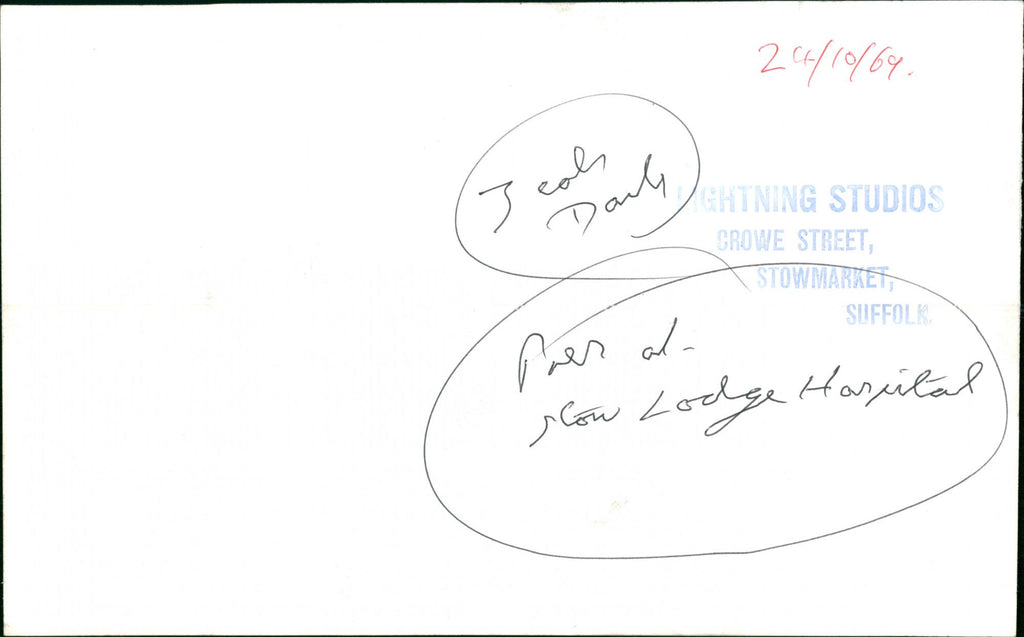 24/10/69.
3 cols
LIGHTNING STUDIOS
CROWE STREET,
STOWMARKET,
SUFFOLK.
at
Stow Lodge Hospital